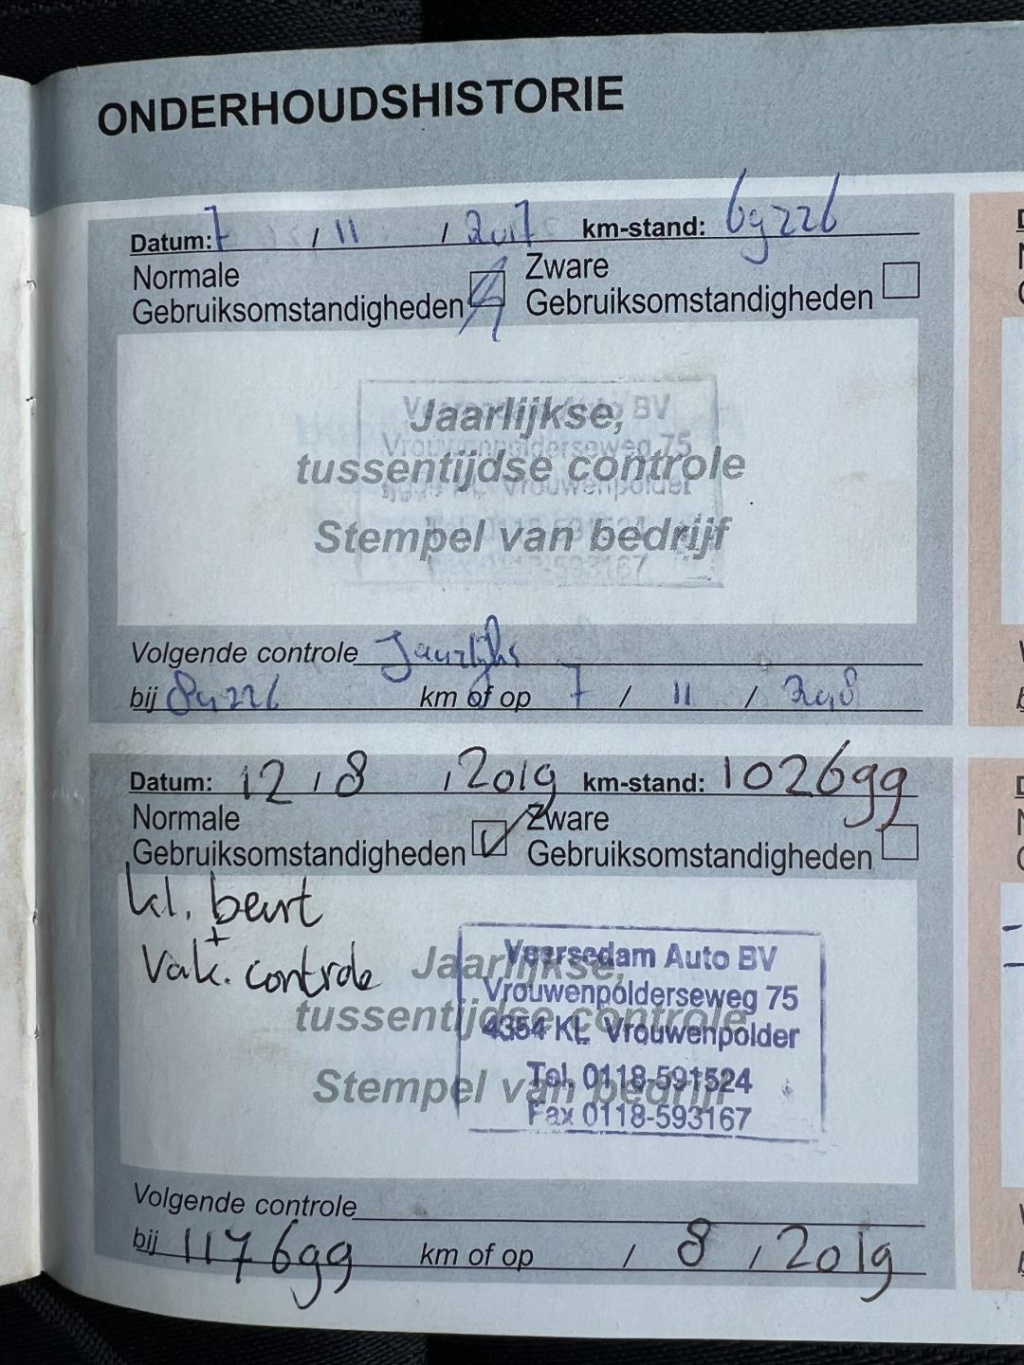 ONDERHOUDSHISTORIE
Datum: 7 / 11 / 2017 km-stand: 69226
Normale Gebruiksomstandigheden
Zware Gebruiksomstandigheden
Veersedam Auto BV
Jaarlijkse,
Vrouwenpolderseweg 75
tussentijdse controle
KL Vrouwenpolder
Stempel van bedrijf
593167
Volgende controle Jaarlijks
bij 84226 km of op 7 / 11 / 2018
Datum: 12 / 8 / 2019 km-stand: 102699
Normale Gebruiksomstandigheden
Zware Gebruiksomstandigheden
kl. beurt
+
Vak. controle
Jaarlijkse,
tussentijdse controle
Stempel van bedrijf
Veersedam Auto BV
Vrouwenpolderseweg 75
4354 KL Vrouwenpolder
Tel. 0118-591524
Fax 0118-593167
Volgende controle
bij 117699 km of op / 8 / 2019